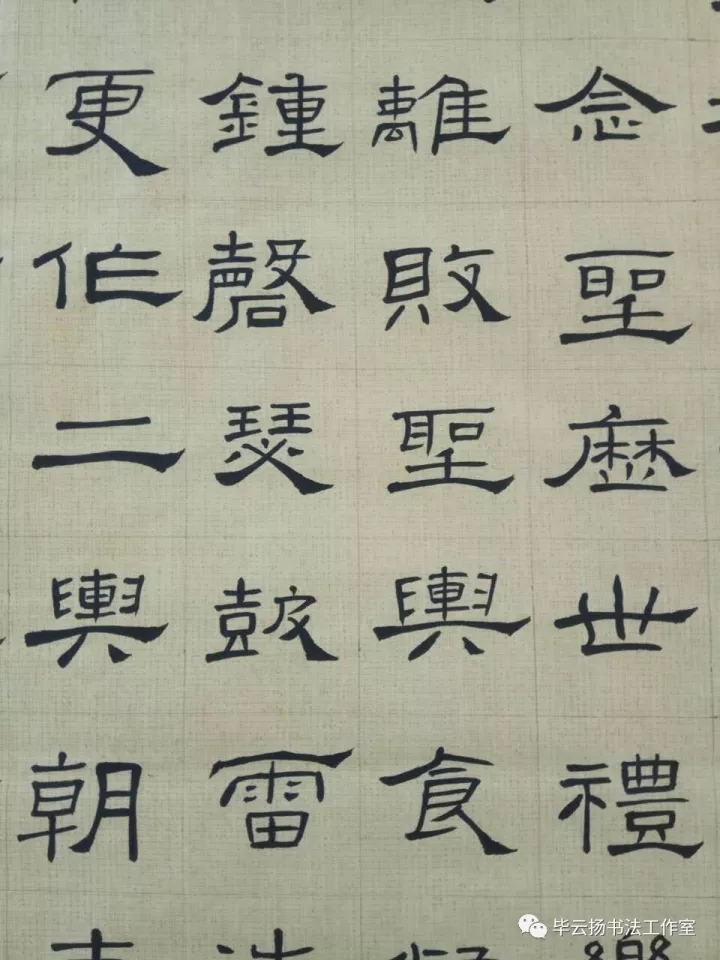 念聖歷世禮樂
離敗聖輿食
鍾磬瑟鼓雷洗
更作二輿朝
毕云扬书法工作室